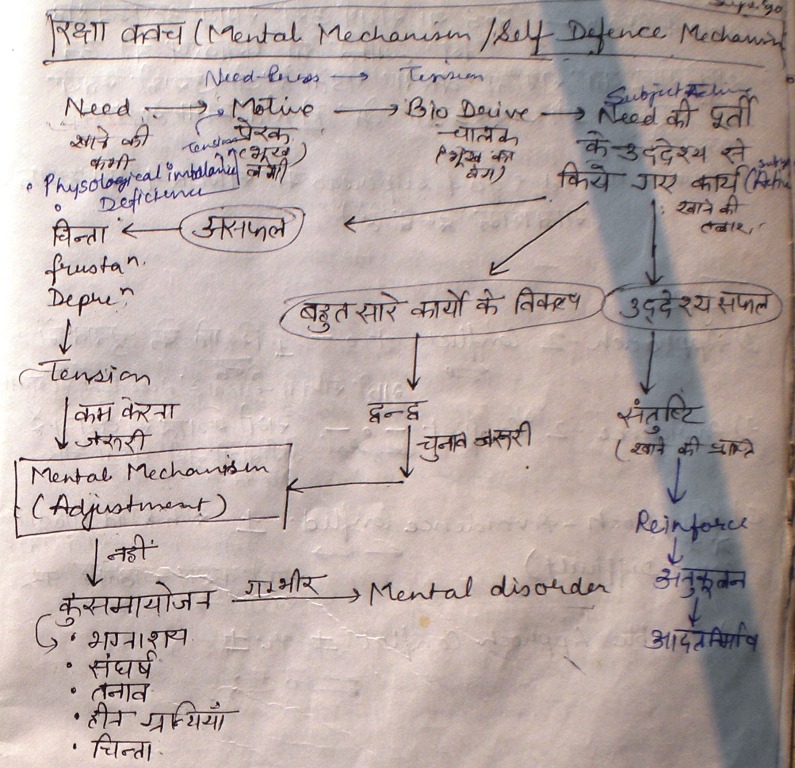 रक्षा कवच (Mental Mechanism / Self Defence Mechanism
Need Press → Tension
Need → Motive → Bio Derive → Need की पूर्ती
खाने की कमी
प्रेरक (भूख लगी)
चालक (भूख का वेग)
के उद्देश्य से
किये गए कार्य
• Physological imbalance
• Deficience
Tension
खाने की तलाश
चिन्ता ← असफल
frustaⁿ.
Depreⁿ.
बहुत सारे कार्यो के विकल्प
उद्देश्य सफल
Tension
कम करना
जरूरी
द्वन्द्व
चुनाव जरूरी
संतुष्टि
(खाने की प्राप्ति
Mental Mechanism
(Adjustment)
Reinforce
नहीं
अनुकूलन
कुसमायोजन गम्भीर → Mental disorder
आदत निर्माण
• भग्नाशय
• संघर्ष
• तनाव
• हीन ग्रन्थियाँ
• चिन्ता.